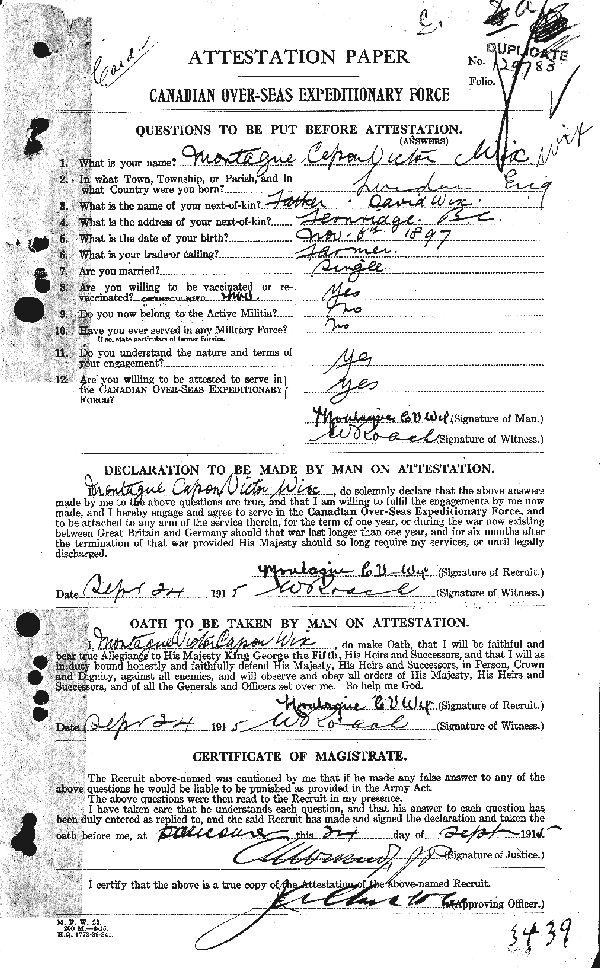 DUPLICATE
ATTESTATION PAPER
No. 129783
Folio.
CANADIAN OVER-SEAS EXPEDITIONARY FORCE
QUESTIONS TO BE PUT BEFORE ATTESTATION.
(ANSWERS)
1. What is your name? Montague Capon Victor Wix Wix
2. In what Town, Township, or Parish, and in
what Country were you born? London Eng
3. What is the name of your next-of-kin? Father David Wix
4. What is the address of your next-of-kin? Fernridge BC
5. What is the date of your birth? Nov. 6th 1897
6. What is your trade or calling? Farmer
7. Are you married? Single
8. Are you willing to be vaccinated or re-
vaccinated? Yes
9. Do you now belong to the Active Militia? No
10. Have you ever served in any Military Force? No
If so, state particulars of former Service.
11. Do you understand the nature and terms of
your engagement? Yes
12. Are you willing to be attested to serve in
the CANADIAN OVER-SEAS EXPEDITIONARY
FORCE? Yes
Montague C V Wix (Signature of Man.)
W Roach (Signature of Witness.)
DECLARATION TO BE MADE BY MAN ON ATTESTATION.
I, Montague Capon Victor Wix, do solemnly declare that the above answers
made by me to the above questions are true, and that I am willing to fulfil the engagements by me now
made, and I hereby engage and agree to serve in the Canadian Over-Seas Expeditionary Force, and
to be attached to any arm of the service therein, for the term of one year, or during the war now existing
between Great Britain and Germany should that war last longer than one year, and for six months after
the termination of that war provided His Majesty should so long require my services, or until legally
discharged.
Montague C V Wix (Signature of Recruit.)
Date Sept 24 1915 W Roach (Signature of Witness.)
OATH TO BE TAKEN BY MAN ON ATTESTATION.
I, Montague Victor Capon Wix, do make Oath, that I will be faithful and
bear true Allegiance to His Majesty King George the Fifth, His Heirs and Successors, and that I will as
in duty bound honestly and faithfully defend His Majesty, His Heirs and Successors, in Person, Crown
and Dignity, against all enemies, and will observe and obey all orders of His Majesty, His Heirs and
Successors, and of all the Generals and Officers set over me. So help me God.
Montague C V Wix (Signature of Recruit.)
Date Sept 24 1915 W Roach (Signature of Witness.)
CERTIFICATE OF MAGISTRATE.
The Recruit above-named was cautioned by me that if he made any false answer to any of the
above questions he would be liable to be punished as provided in the Army Act.
The above questions were then read to the Recruit in my presence.
I have taken care that he understands each question, and that his answer to each question has
been duly entered as replied to, and the said Recruit has made and signed the declaration and taken the
oath before me, at Vancouver this 24 day of Sept 1915
(Signature of Justice.)
I certify that the above is a true copy of the Attestation of the above-named Recruit.
(Approving Officer.)
M. F. W. 23.
H.Q. 1772-39-241.
3439